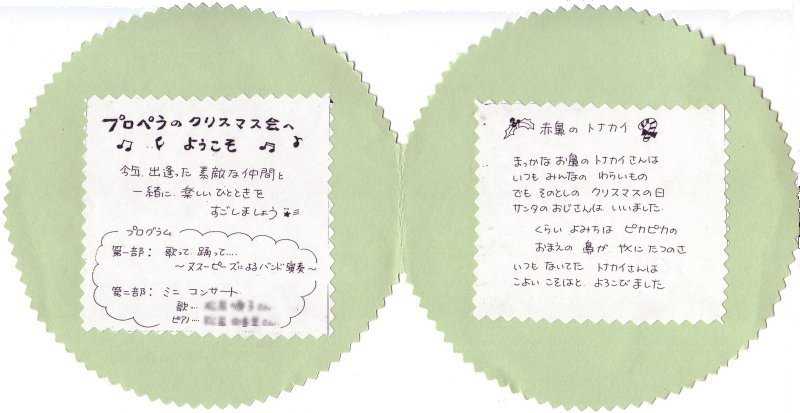 プロペラの クリスマス会へ
ようこそ
今年、出逢った 素敵な仲間と
一緒に、楽しいひとときを
すごしましょう
プログラム
第一部: 歌って 踊って…
〜ヌヌーピーズによるバンド演奏〜
第二部: ミニ コンサート
歌…
ピアノ…
赤鼻の トナカイ
まっかな お鼻の トナカイさんは
いつも みんなの わらいもの
でも そのとしの クリスマスの日
サンタの おじさんは いいました
くらい よみちは ピカピカの
おまえの 鼻が やくに たつのさ
いつも ないてた トナカイさんは
こよい こそはと よろこびました